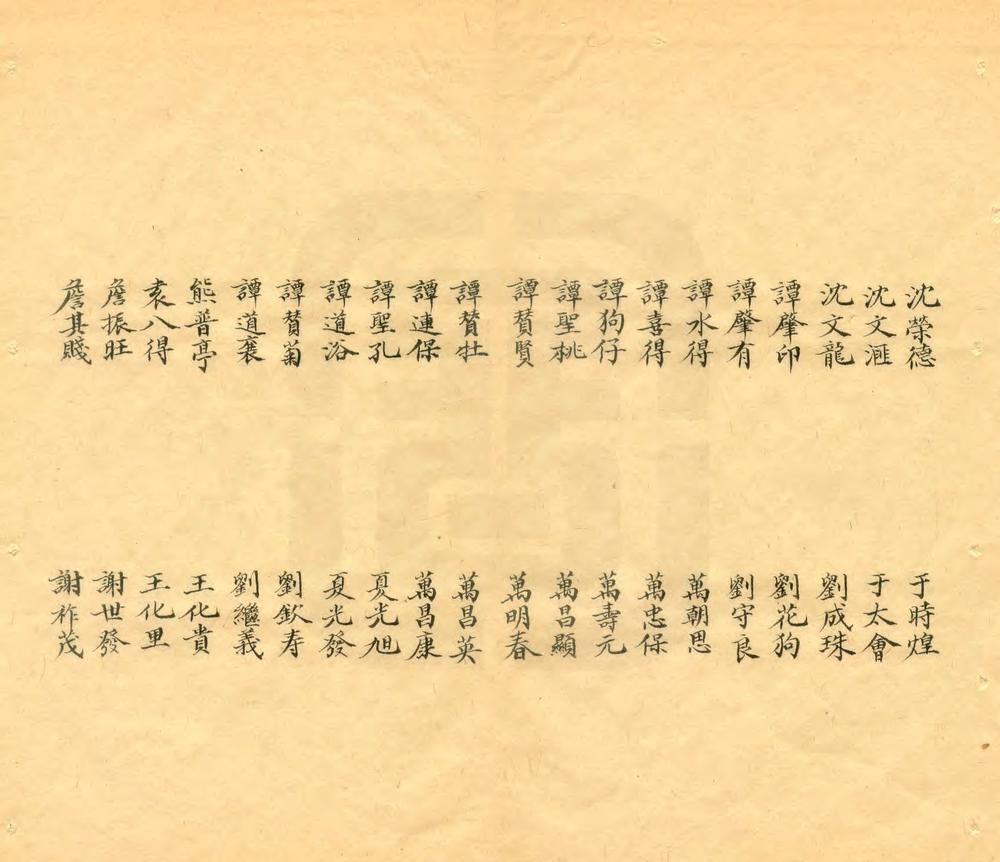 沈榮德
沈文滙
沈文龍
譚肇印
譚肇有
譚水得
譚喜得
譚狗仔
譚聖桃
譚賛賢
譚賛牡
譚連保
譚聖孔
譚道浴
譚賛菊
譚道襄
熊普亭
袁八得
詹振旺
詹其賤
于時煌
于太會
劉成珠
劉花狗
劉守良
萬朝思
萬忠保
萬壽元
萬昌顯
萬明春
萬昌英
萬昌康
夏光旭
夏光發
劉欽寿
劉繼義
王化貴
王化里
謝世發
謝祚茂